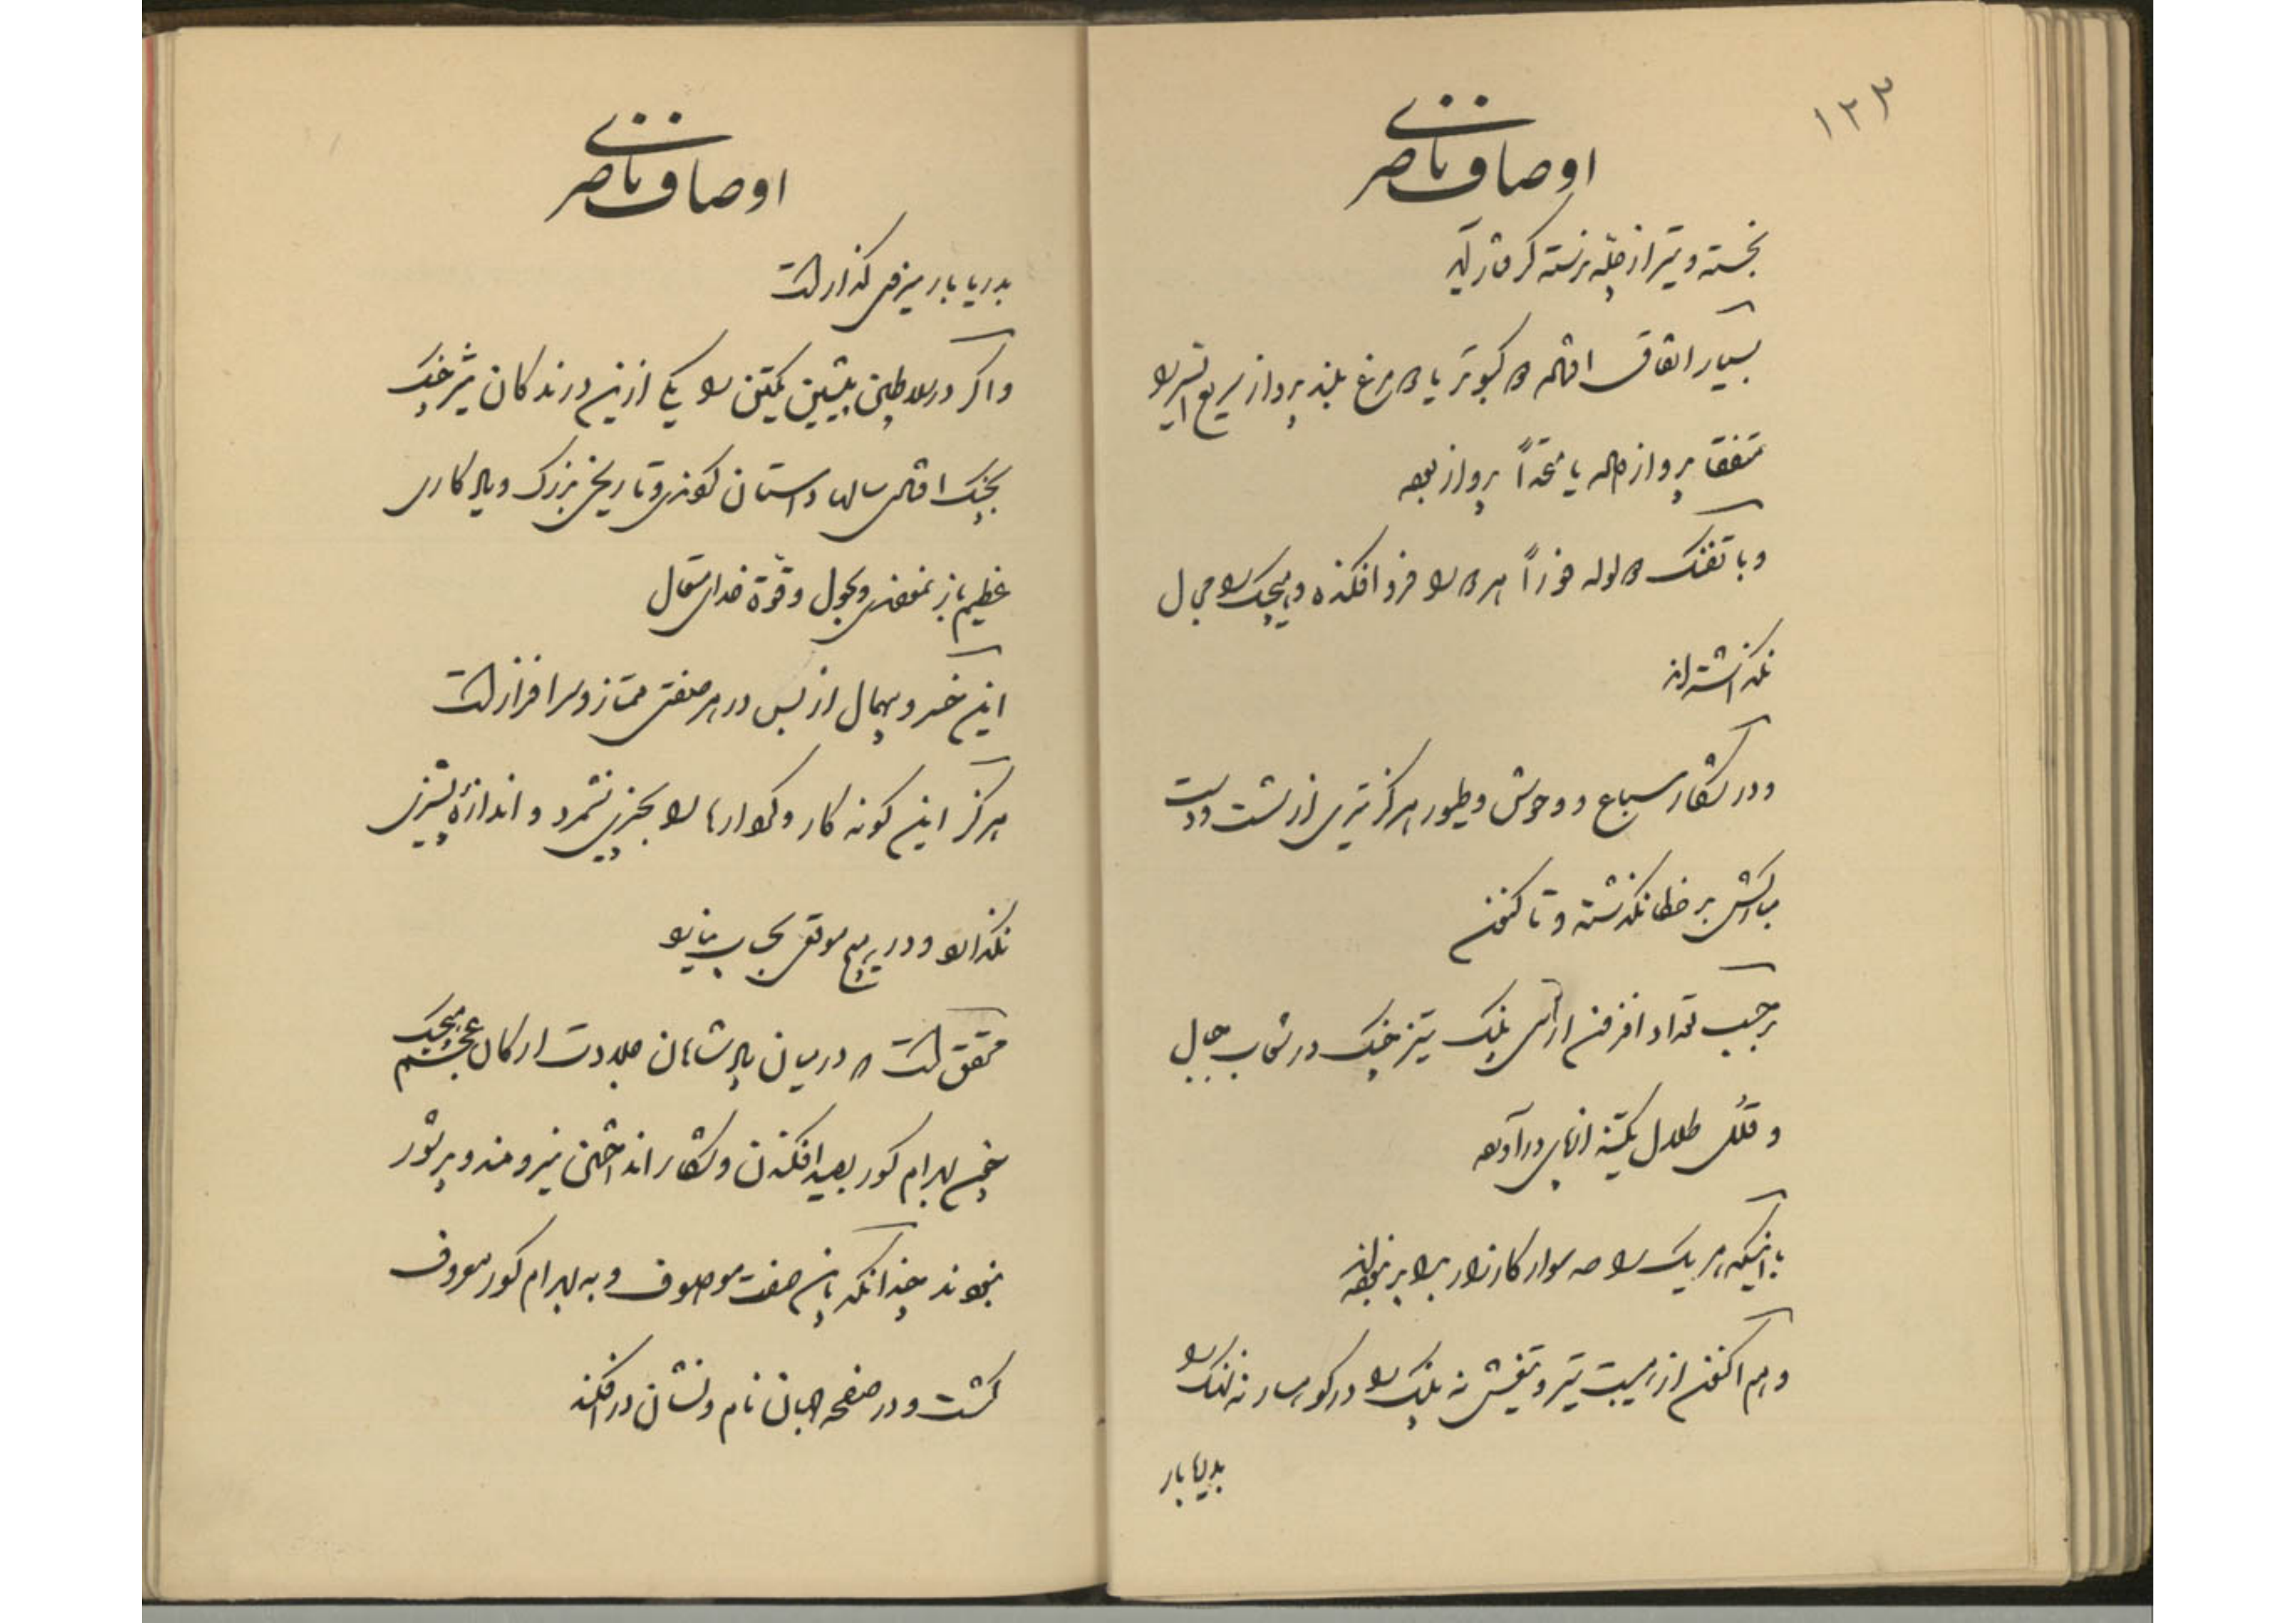 ۱۲۳
اوصاف ناصری
نجسته و تیر از چله نرسته گرفتار آید
بسیار اتفاق افتاده دو کبوتر یا دو مرغ بلند پرواز سریع السیر را
متفقا پرواز داده یا مجتمعاً پرواز نموده
و با تفنگ دو لوله فوراً هر دو را فرو افکنده و هیچیک را مجال
نگذاشته‌اند
و در شکار سباع و وحوش و طیور هرگز تیری از شست و دست
مبارکش بر خطا نگذشته و تا کنون
بر حسب تعداد افزون از سی پلنگ تیز چنگ در شعاب جبال
و قلل طلال یکتنه از پای درآورده
با اینکه هر یک را صد سوار کارزار برابر نبوده‌اند
و هم اکنون از هیبت تیر و تیغش نه پلنگ را در کوهسار نه نهنگ را
بدریا بار
اوصاف ناصری
بدریا بار میزفی گذار است
و اگر در سلاطین پیشین یکتن را یکی ازین درندگان شیر چنگ
بچنگ افتادی سالها داستان گوندی و تاریخی بزرگ و یادگاری
عظیم باز نمودندی و بحول و قوة خدای متعال
این خسرو بیهمال از بس در هر صفتی ممتاز و سرافراز است
هرگز این گونه کار و کردارها را بچیزی نشمرد و اندازه پشیزی
نگذارد و در هیچ موقعی بحساب نیاید
محقق است که در میان پادشاهان جلادت ارکان عجم هیچیک
چون بهرام گور بصید افکندن و شکار انداختن نیرومند و پر شور
نبودند چندانکه بان صفت موصوف و به بهرام گور معروف
گشت و در صفحه جهان نام و نشان درافکند